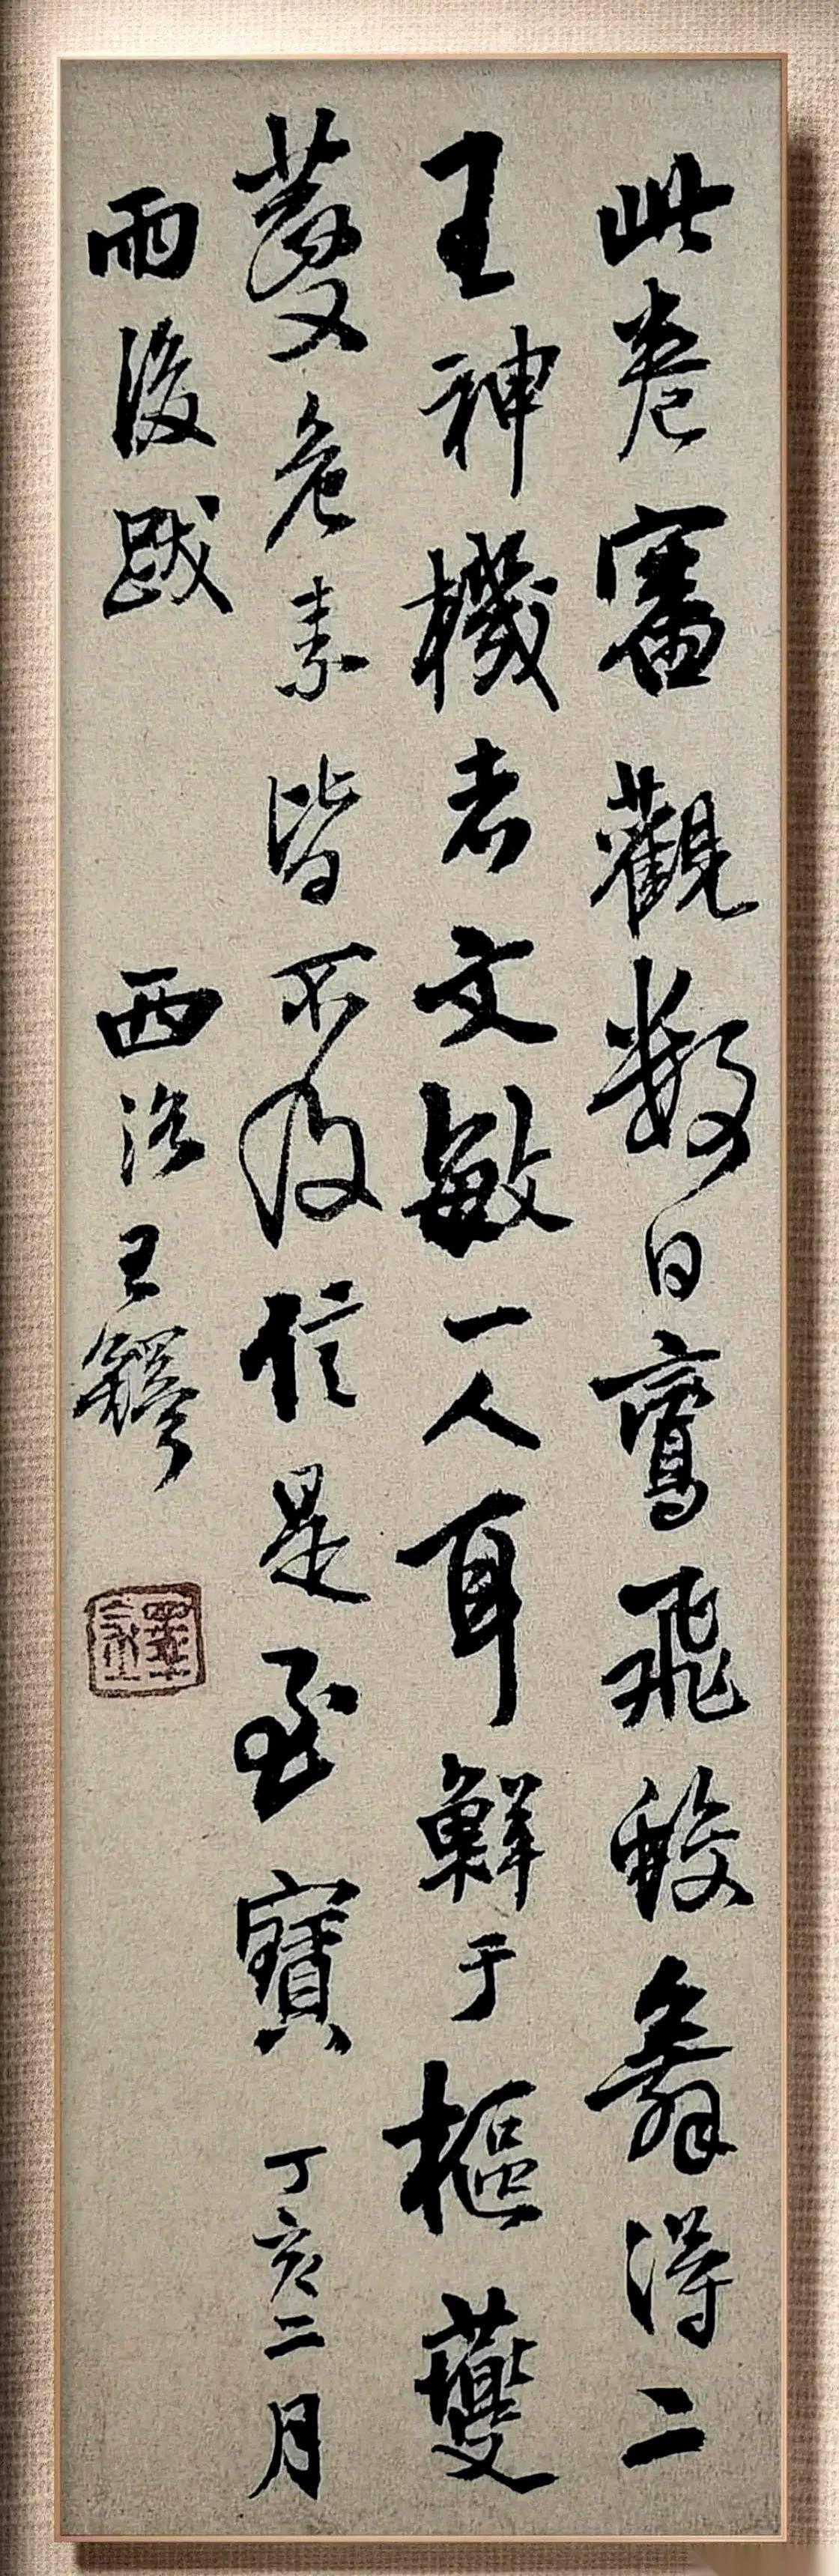 此卷審觀數日鸞飛蛟舞得二
王神機者文敏一人耳鮮于樞夔
夔危素皆不及信是至寶 丁亥二月
雨後跋 西洛王鐸